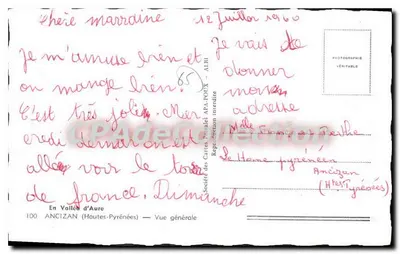 Chère marraine
12 Juillet 1960
Je m'amuse bien et
on mange bien.
C'est très joli. Mer
credi demain on est
allé voir le tour
de france. Dimanche
Je vais te
donner
mon
adresse
Mlle Françoise
Le Home pyrénéen
Ancizan
(Htes Pyrénées)
65
PHOTOGRAPHIE
VERITABLE
Société des Cartes Postales APA-POUX - ALBI
Reproduction interdite
CPA Collection
En Vallée d'Aure
100 ANCIZAN (Hautes-Pyrénées) — Vue générale